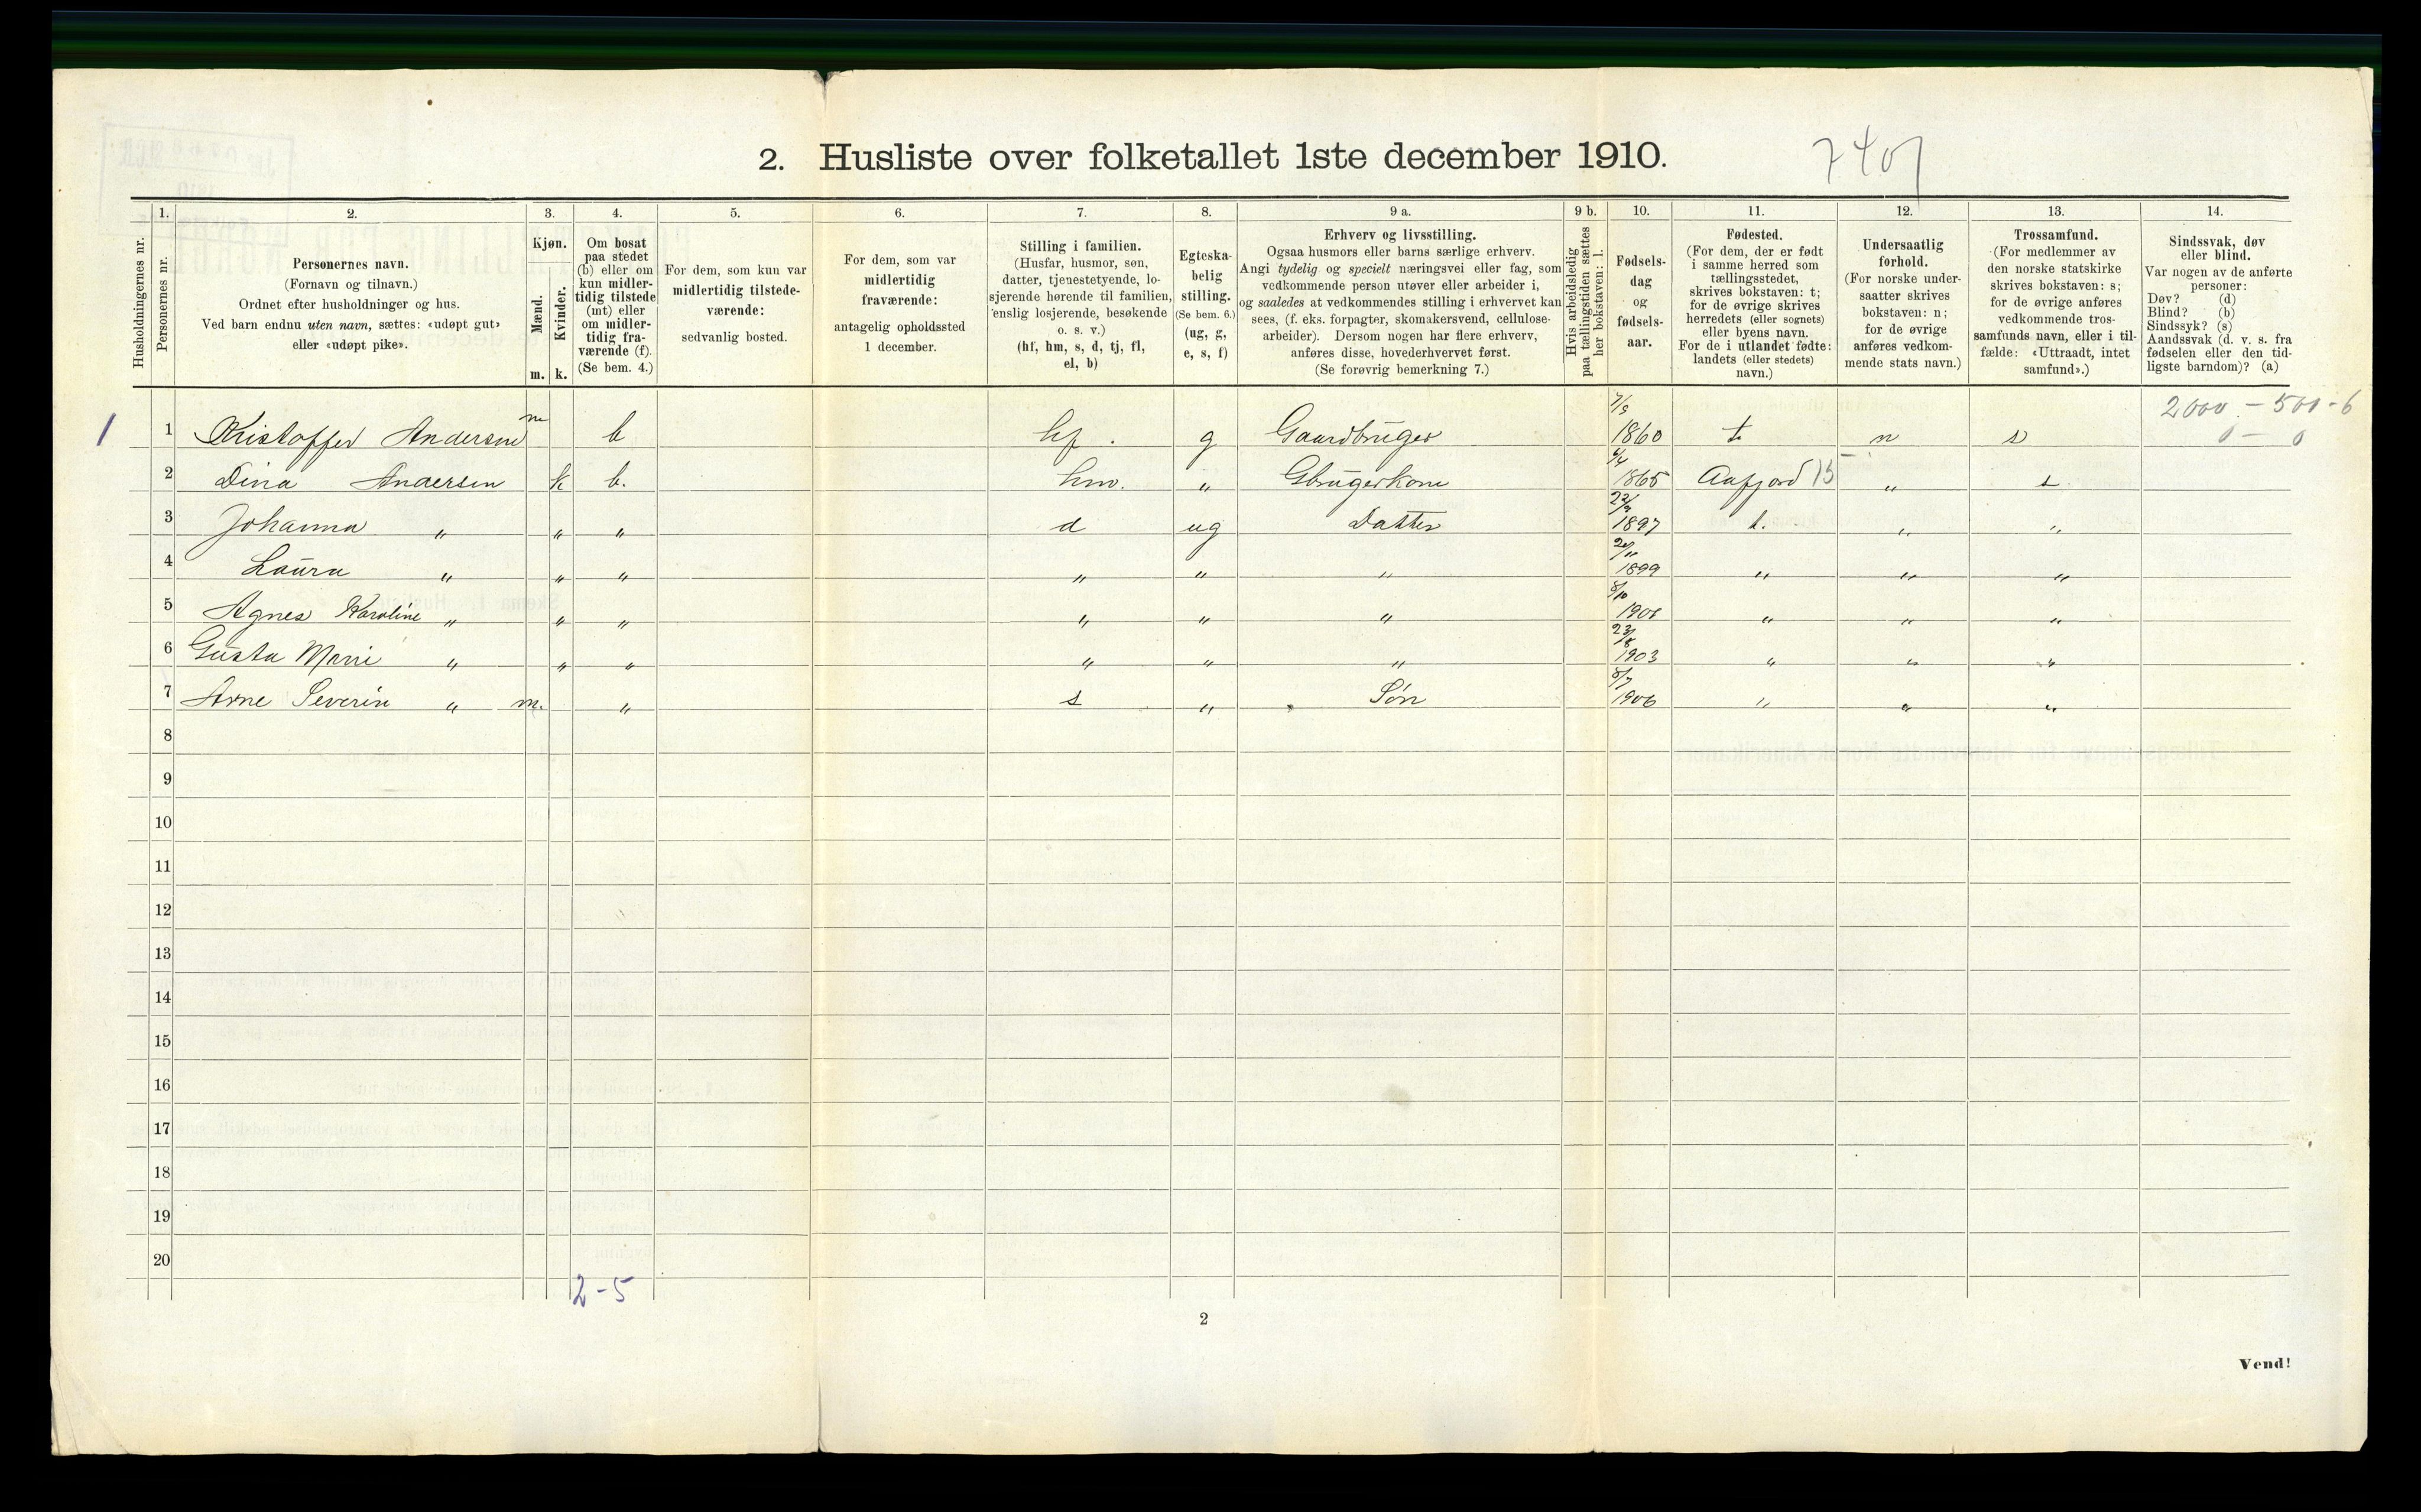 2. Husliste over folketallet 1ste december 1910.
740
1. 2. 3. 4. 5. 6. 7. 8. 9 a. 9 b. 10. 11. 12. 13. 14.
Husholdningernes nr.
Personernes nr.
Personernes navn.
(Fornavn og tilnavn.)
Ordnet efter husholdninger og hus.
Ved barn endnu uten navn, sættes: «udøpt gut»
eller «udøpt pike».
Kjøn.
Mænd.
Kvinder.
m. k.
Om bosat
paa stedet
(b) eller om
kun midler-
tidig tilstede
(mt) eller
om midler-
tidig fra-
værende (f).
(Se bem. 4.)
For dem, som kun var
midlertidig tilstede-
værende:
sedvanlig bosted.
For dem, som var
midlertidig
fraværende:
antagelig opholdssted
1 december.
Stilling i familien.
(Husfar, husmor, søn,
datter, tjenestetyende, lo-
sjerende hørende til familien,
enslig losjerende, besøkende
o. s. v.)
(hf, hm, s, d, tj, fl,
el, b)
Egteska-
belig
stilling.
(Se bem. 6.)
(ug, g,
e, s, f)
Erhverv og livsstilling.
Ogsaa husmors eller barns særlige erhverv.
Angi tydelig og specielt næringsvei eller fag, som
vedkommende person utøver eller arbeider i,
og saaledes at vedkommendes stilling i erhvervet kan
sees, (f. eks. forpagter, skomakersvend, cellulose-
arbeider). Dersom nogen har flere erhverv,
anføres disse, hovederhvervet først.
(Se forøvrig bemerkning 7.)
Hvis arbeidsledig
paa tællingstiden sættes
her bokstaven: l.
Fødsels-
dag
og
fødsels-
aar.
Fødested.
(For dem, der er født
i samme herred som
tællingsstedet,
skrives bokstaven: t;
for de øvrige skrives
herredets (eller sognets)
eller byens navn.
For de i utlandet fødte:
landets (eller stedets)
navn.)
Undersaatlig
forhold.
(For norske under-
saatter skrives
bokstaven: n;
for de øvrige
anføres vedkom-
mende stats navn.)
Trossamfund.
(For medlemmer av
den norske statskirke
skrives bokstaven: s;
for de øvrige anføres
vedkommende tros-
samfunds navn, eller i til-
fælde: «Uttraadt, intet
samfund».)
Sindssvak, døv
eller blind.
Var nogen av de anførte
personer:
Døv? (d)
Blind? (b)
Sindssyk? (s)
Aandssvak (d. v. s. fra
fødselen eller den tid-
ligste barndom)? (a)
2000 - 500 - 6
0 - 0
1 1 Kristoffer Andersen m b hf. g Gaardbruger 7/9 1860 t n s
2 Dina Andersen k b. hm. " Gbrugerkone 1865 Aafjord 15 " s
3 Johanna " " " d ug Datter 1897 t. " "
4 Laura " " " " " " 20/11 1899 " " "
5 Agnes Karoline " " " " " " 8/10 1901 " " "
6 Gusta Marie " " " " " " 23/8 1903 " " "
7 Arne Severin " m. " s " Søn 8/7 1906 " " "
8
9
10
11
12
13
14
15
16
17
18
19
20
2-5
2
Vend!